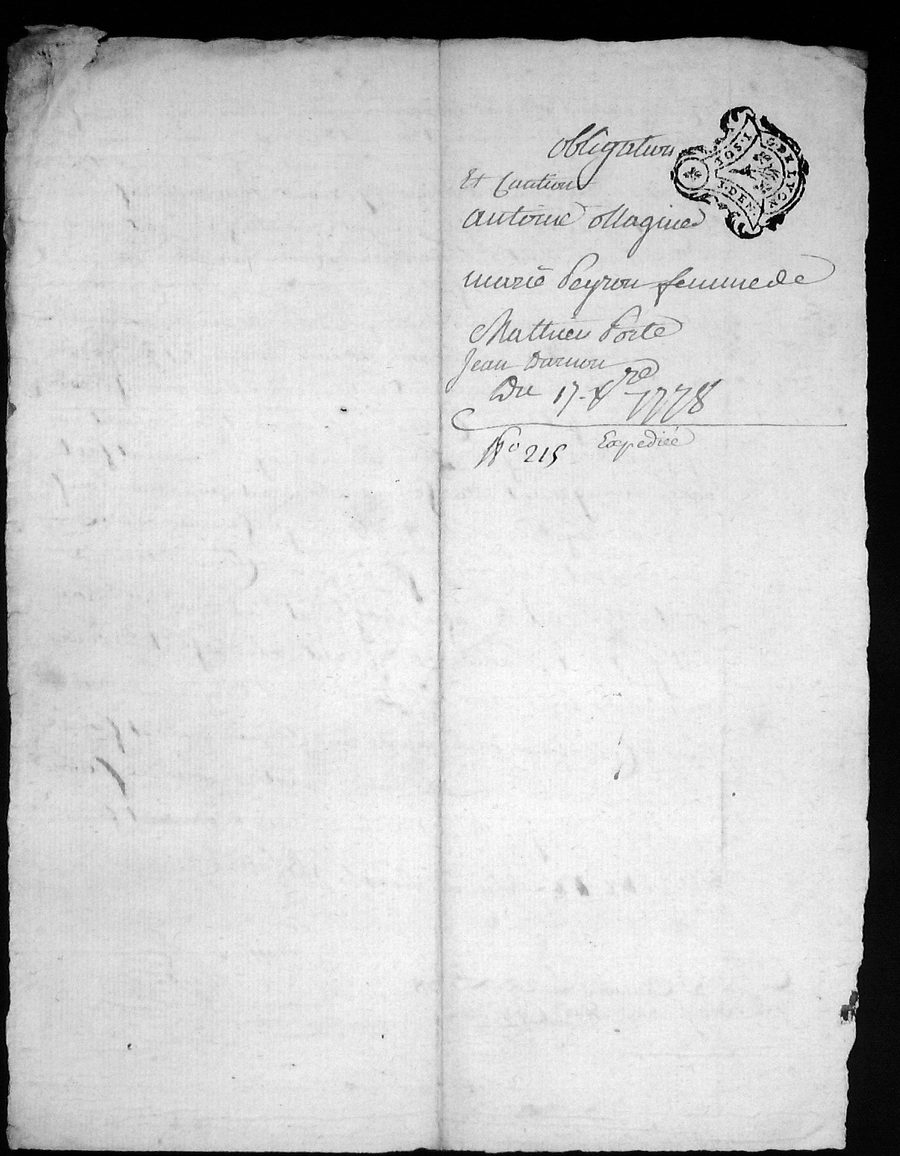 obligation
Et Caution
antoine Magnie
marie Peyron femme de
Mathieu Porte
Jean Darnon
Du 17 8re 1778
No 215 Expediée
G DE LYON
1 OS. 1
3. DEN